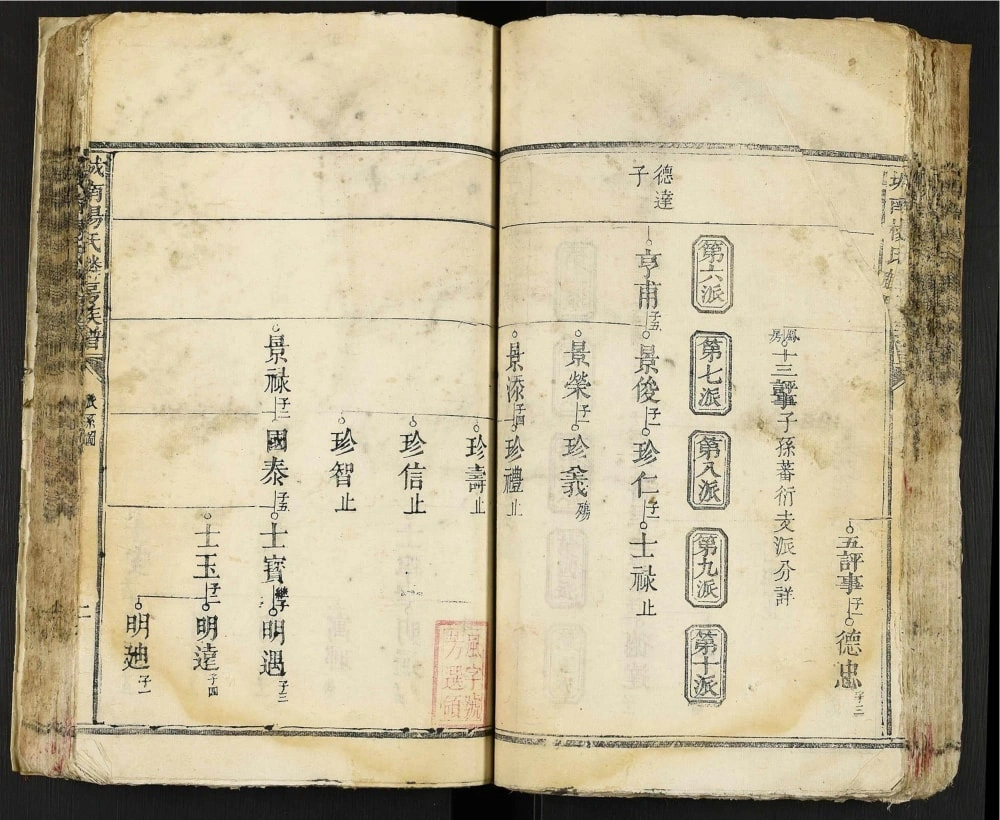 五評事子一德忠子三
鳳房十三評事子孫蕃衍支派分詳
第六派
第七派
第八派
第九派
第十派
德達
子
亨甫子五景俊子一珍仁子一士祿止
景榮子一珍義殤
景添子四珍禮止
珍壽止
珍信止
珍智止
景禄子二國泰子五士寳繼子明遇子三
士玉子一明達子四
明廸子一
城南楊氏
世系圖
二
風字號
男選領